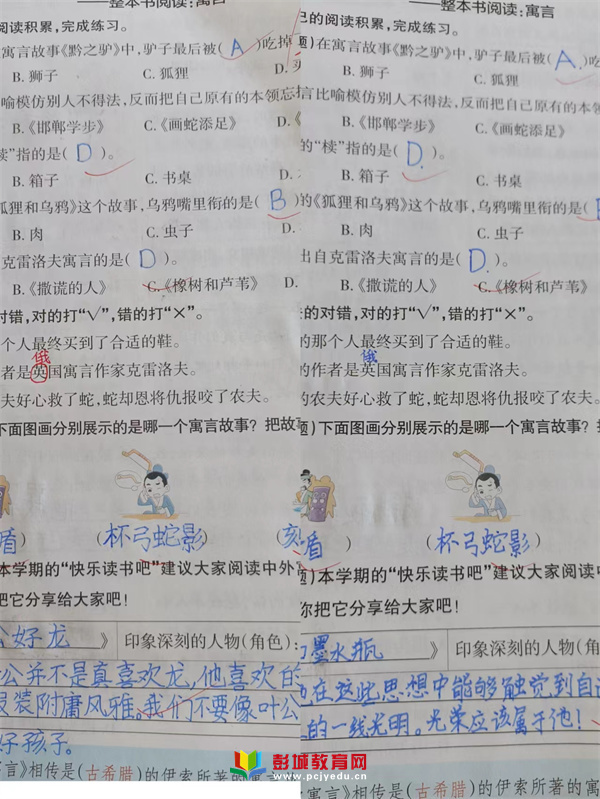 ——整本书阅读:寓言
己的阅读积累,完成练习。
在寓言故事《黔之驴》中,驴子最后被( A )吃掉
B. 狮子 C. 狐狸 D.
喻模仿别人不得法,反而把自己原有的本领忘
B.《邯郸学步》 C.《画蛇添足》 D.
椟”指的是( D )。
B. 箱子 C. 书桌 D.
狐狸和乌鸦》这个故事,乌鸦嘴里衔的是( B )
B. 肉 C. 虫子 D.
克雷洛夫寓言的是( D )。
B.《撒谎的人》 C.《橡树和芦苇》 D.
对错,对的打“√”,错的打“×”。
那个人最终买到了合适的鞋。
俄
者是英国寓言作家克雷洛夫。
农夫好心救了蛇,蛇却恩将仇报咬了农夫。
下面图画分别展示的是哪一个寓言故事? 把故
盾 ) ( 杯弓蛇影 )
本学期的“快乐读书吧”建议大家阅读中外
把它分享给大家吧!
公好龙 》 印象深刻的人物(角色):
公并不是真喜欢龙,他喜欢的
服装附庸风雅。我们不要像叶公
好孩子。
言》相传是(古希腊)的伊索所著的寓
——整本书阅读:寓言
己的阅读积累,完成练习。
题)在寓言故事《黔之驴》中,驴子最后被( A )吃
B. 狮子 C. 狐狸
言比喻模仿别人不得法,反而把自己原有的本领忘
B.《邯郸学步》 C.《画蛇添足》
的“椟”指的是( D )。
B. 箱子 C. 书桌
的《狐狸和乌鸦》这个故事,乌鸦嘴里衔的是(
B. 肉 C. 虫子
出自克雷洛夫寓言的是( D )。
B.《撒谎的人》 C.《橡树和芦苇》
的对错,对的打“√”,错的打“×”。
的那个人最终买到了合适的鞋。
俄
的作者是英国寓言作家克雷洛夫。
的农夫好心救了蛇,蛇却恩将仇报咬了农夫。
题)下面图画分别展示的是哪一个寓言故事? 把
盾 ) ( 杯弓蛇影 )
题)本学期的“快乐读书吧”建议大家阅读中
你把它分享给大家吧!
墨水瓶 》 印象深刻的人物(角
在这些思想中能够触觉到自
的一线光明。光荣应该属于他!
寓言》相传是(古希腊)的伊索所著的寓
彭城教育网
www.pcjyedu.cn